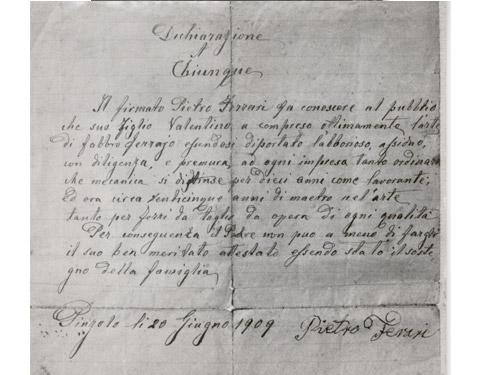 Dichiarazione
A
Chiunque
Il firmato Pietro Ferrari fa conoscere al pubblio
che suo figlio Valentino, a compreso ottimamente l'arte
di fabbro ferrajo essendosi diportato labborioso, assiduo,
con diligenza, e premura, ad ogni impresa tanto ordinaria
che mecanica si distinse per dieci anni come lavorante;
Ed ora circa venticinque anni di maestro nel'arte
tanto per ferri da taglio da opera di ogni qualità
Per conseguenza il Padre non puo a meno di fargli
il suo ben meritato attestato essendo stato il soste
gno della famiglia
Pinzolo li 20 Giugno 1909 Pietro Ferari